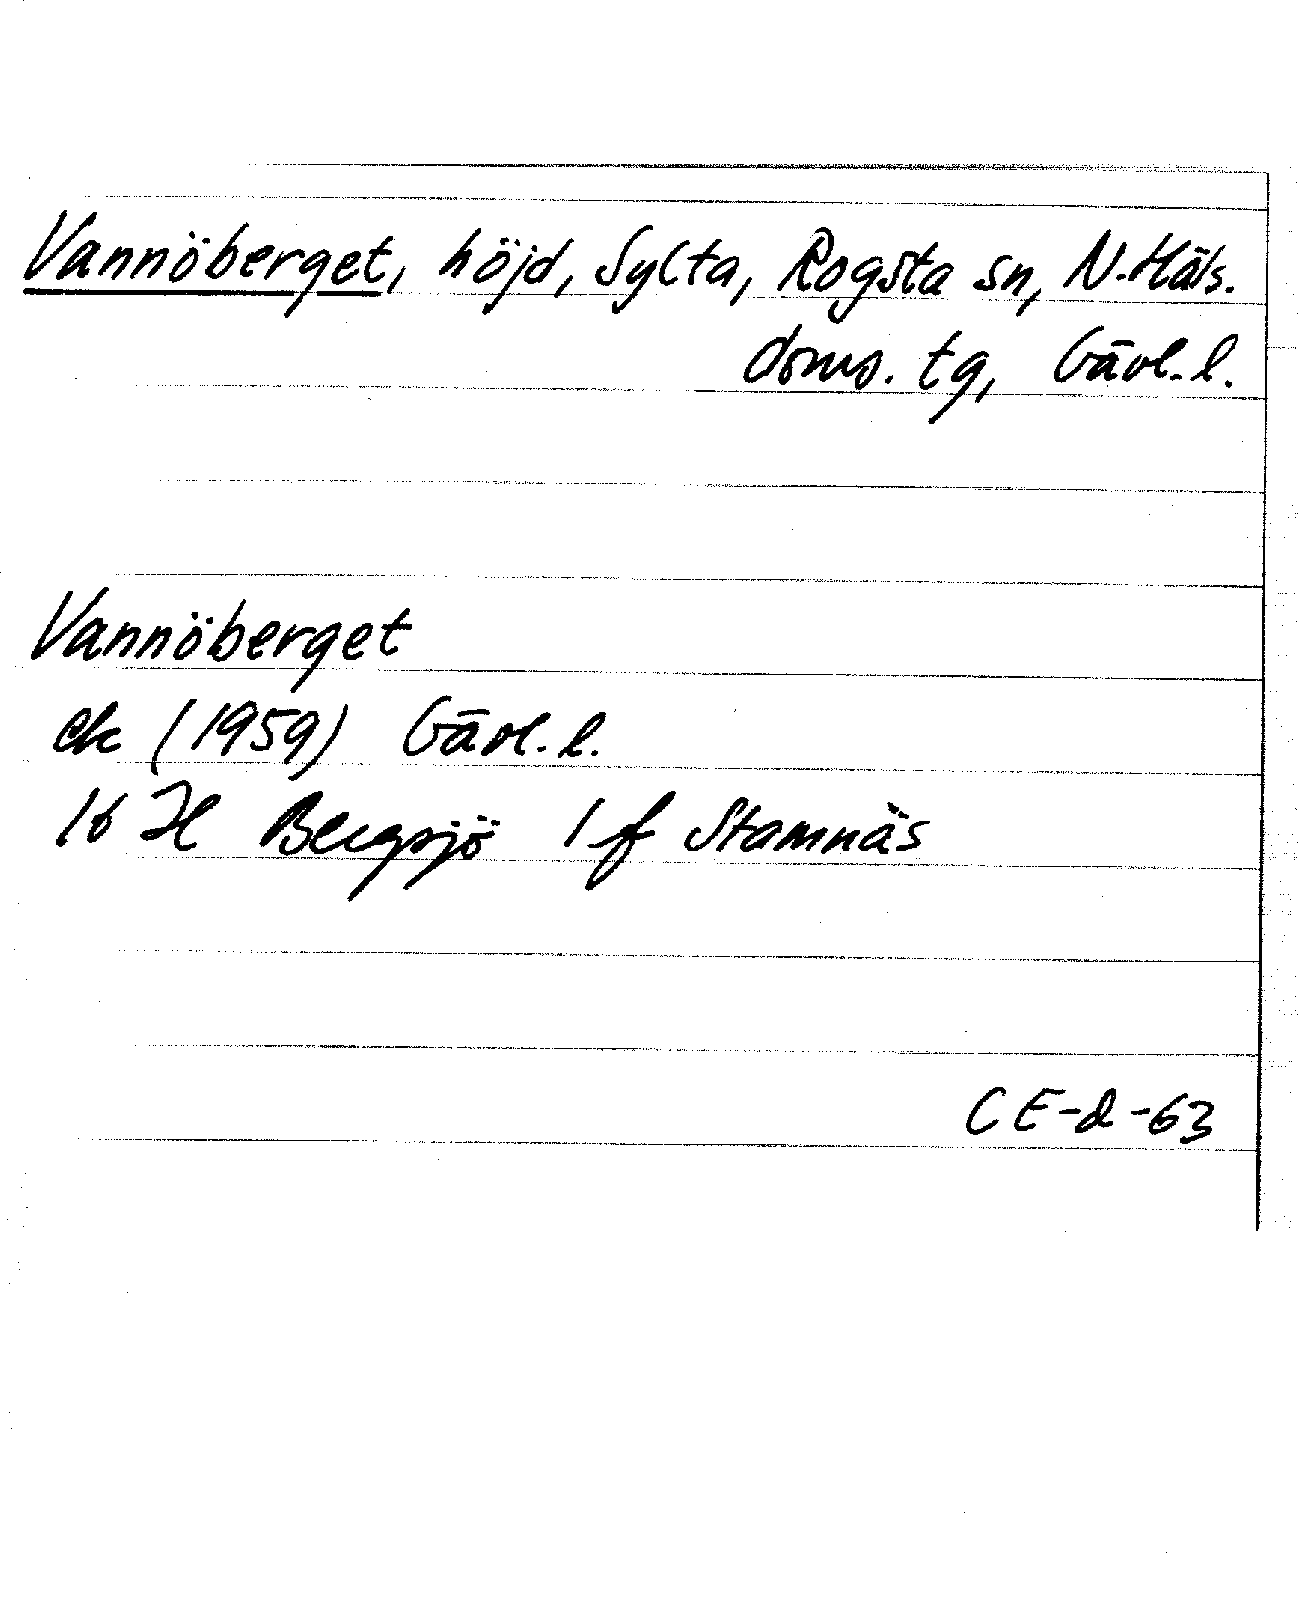 Vannöberget, höjd, Sylta, Rogsta sn, N. Häls.
doms. tg, Gävl. l.
Vannöberget
ek (1959) Gävl. l.
16 H Bergsjö 1 f Stamnäs
CE-d-63